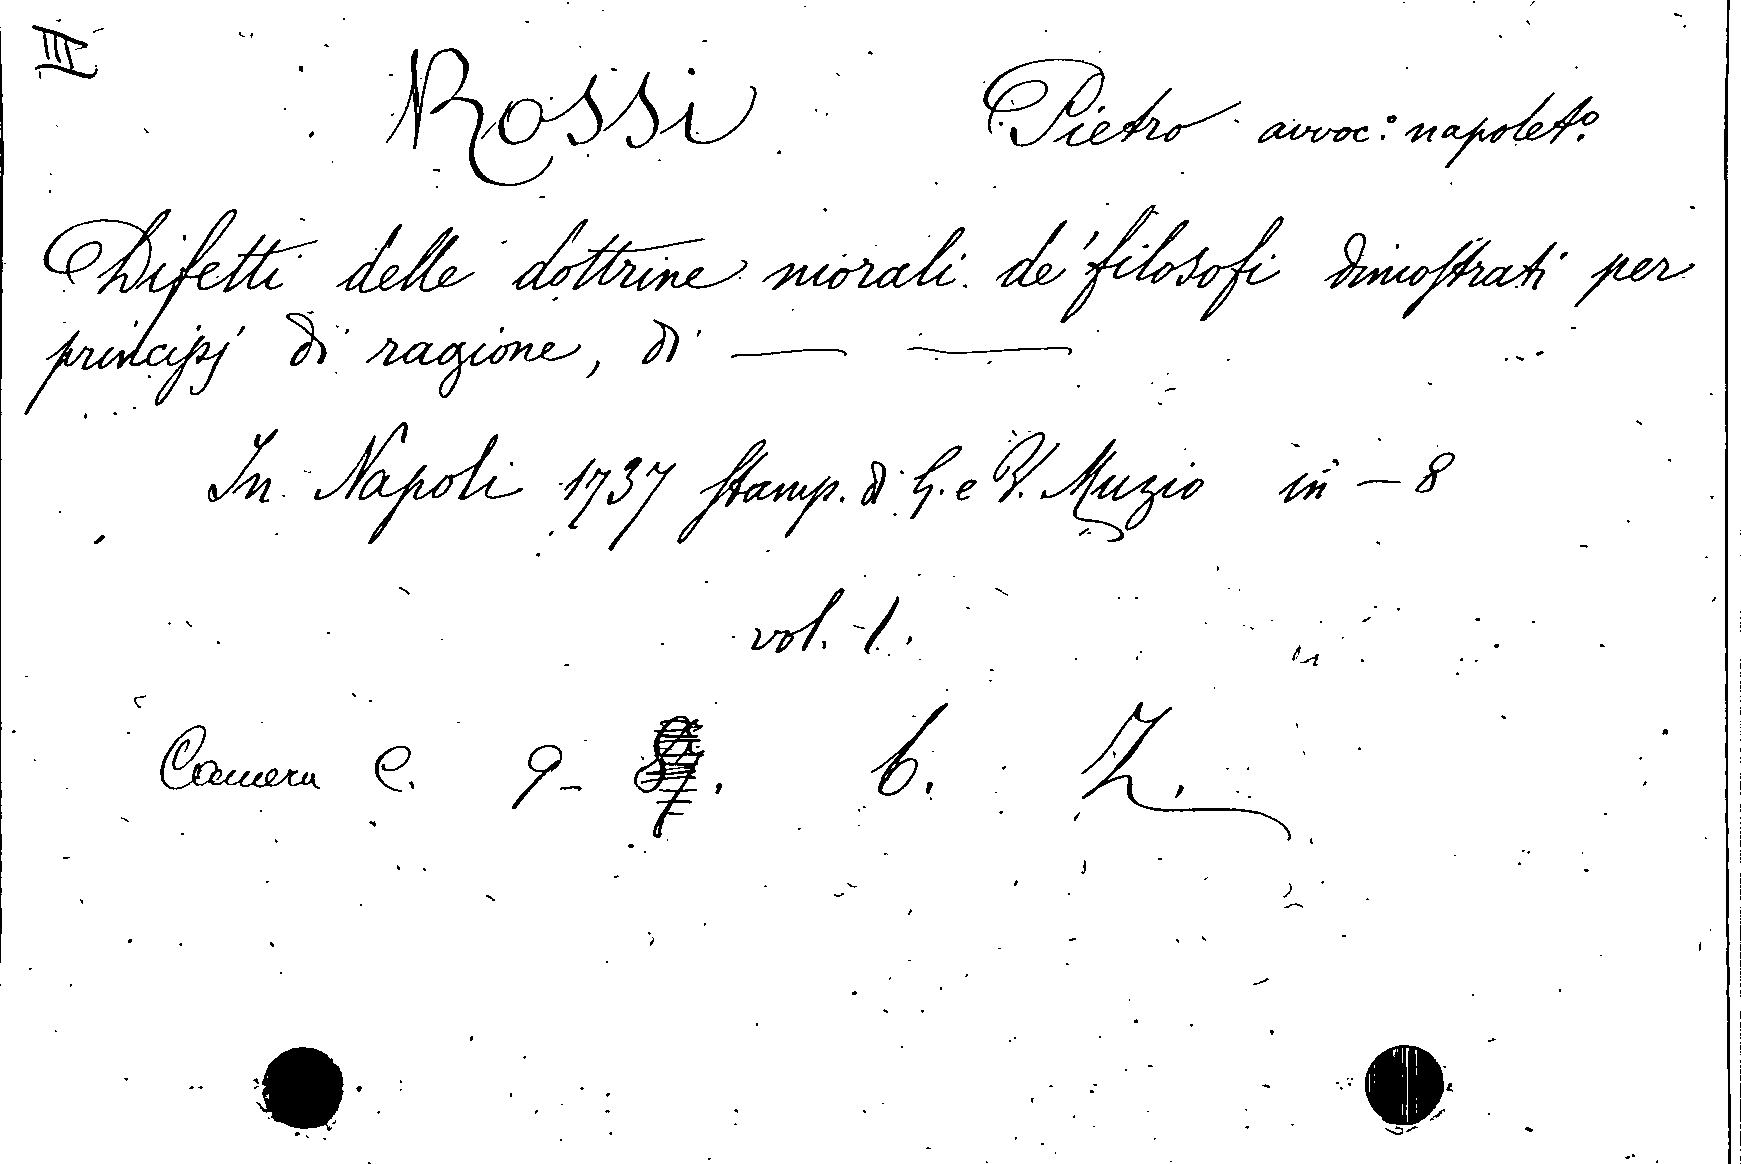 III
Rossi Pietro avvoc.º napolet.º
Difetti delle dottrine morali de' filosofi dimostrati per
principj di ragione, di — —
In Napoli 1737 Stamp. di G. e V. Muzio in - 8
vol. 1.
Camera C. 9 - . 6. Z.